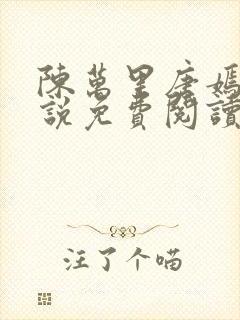 陳萬里唐嫣
說免費閱讀
注了个喵